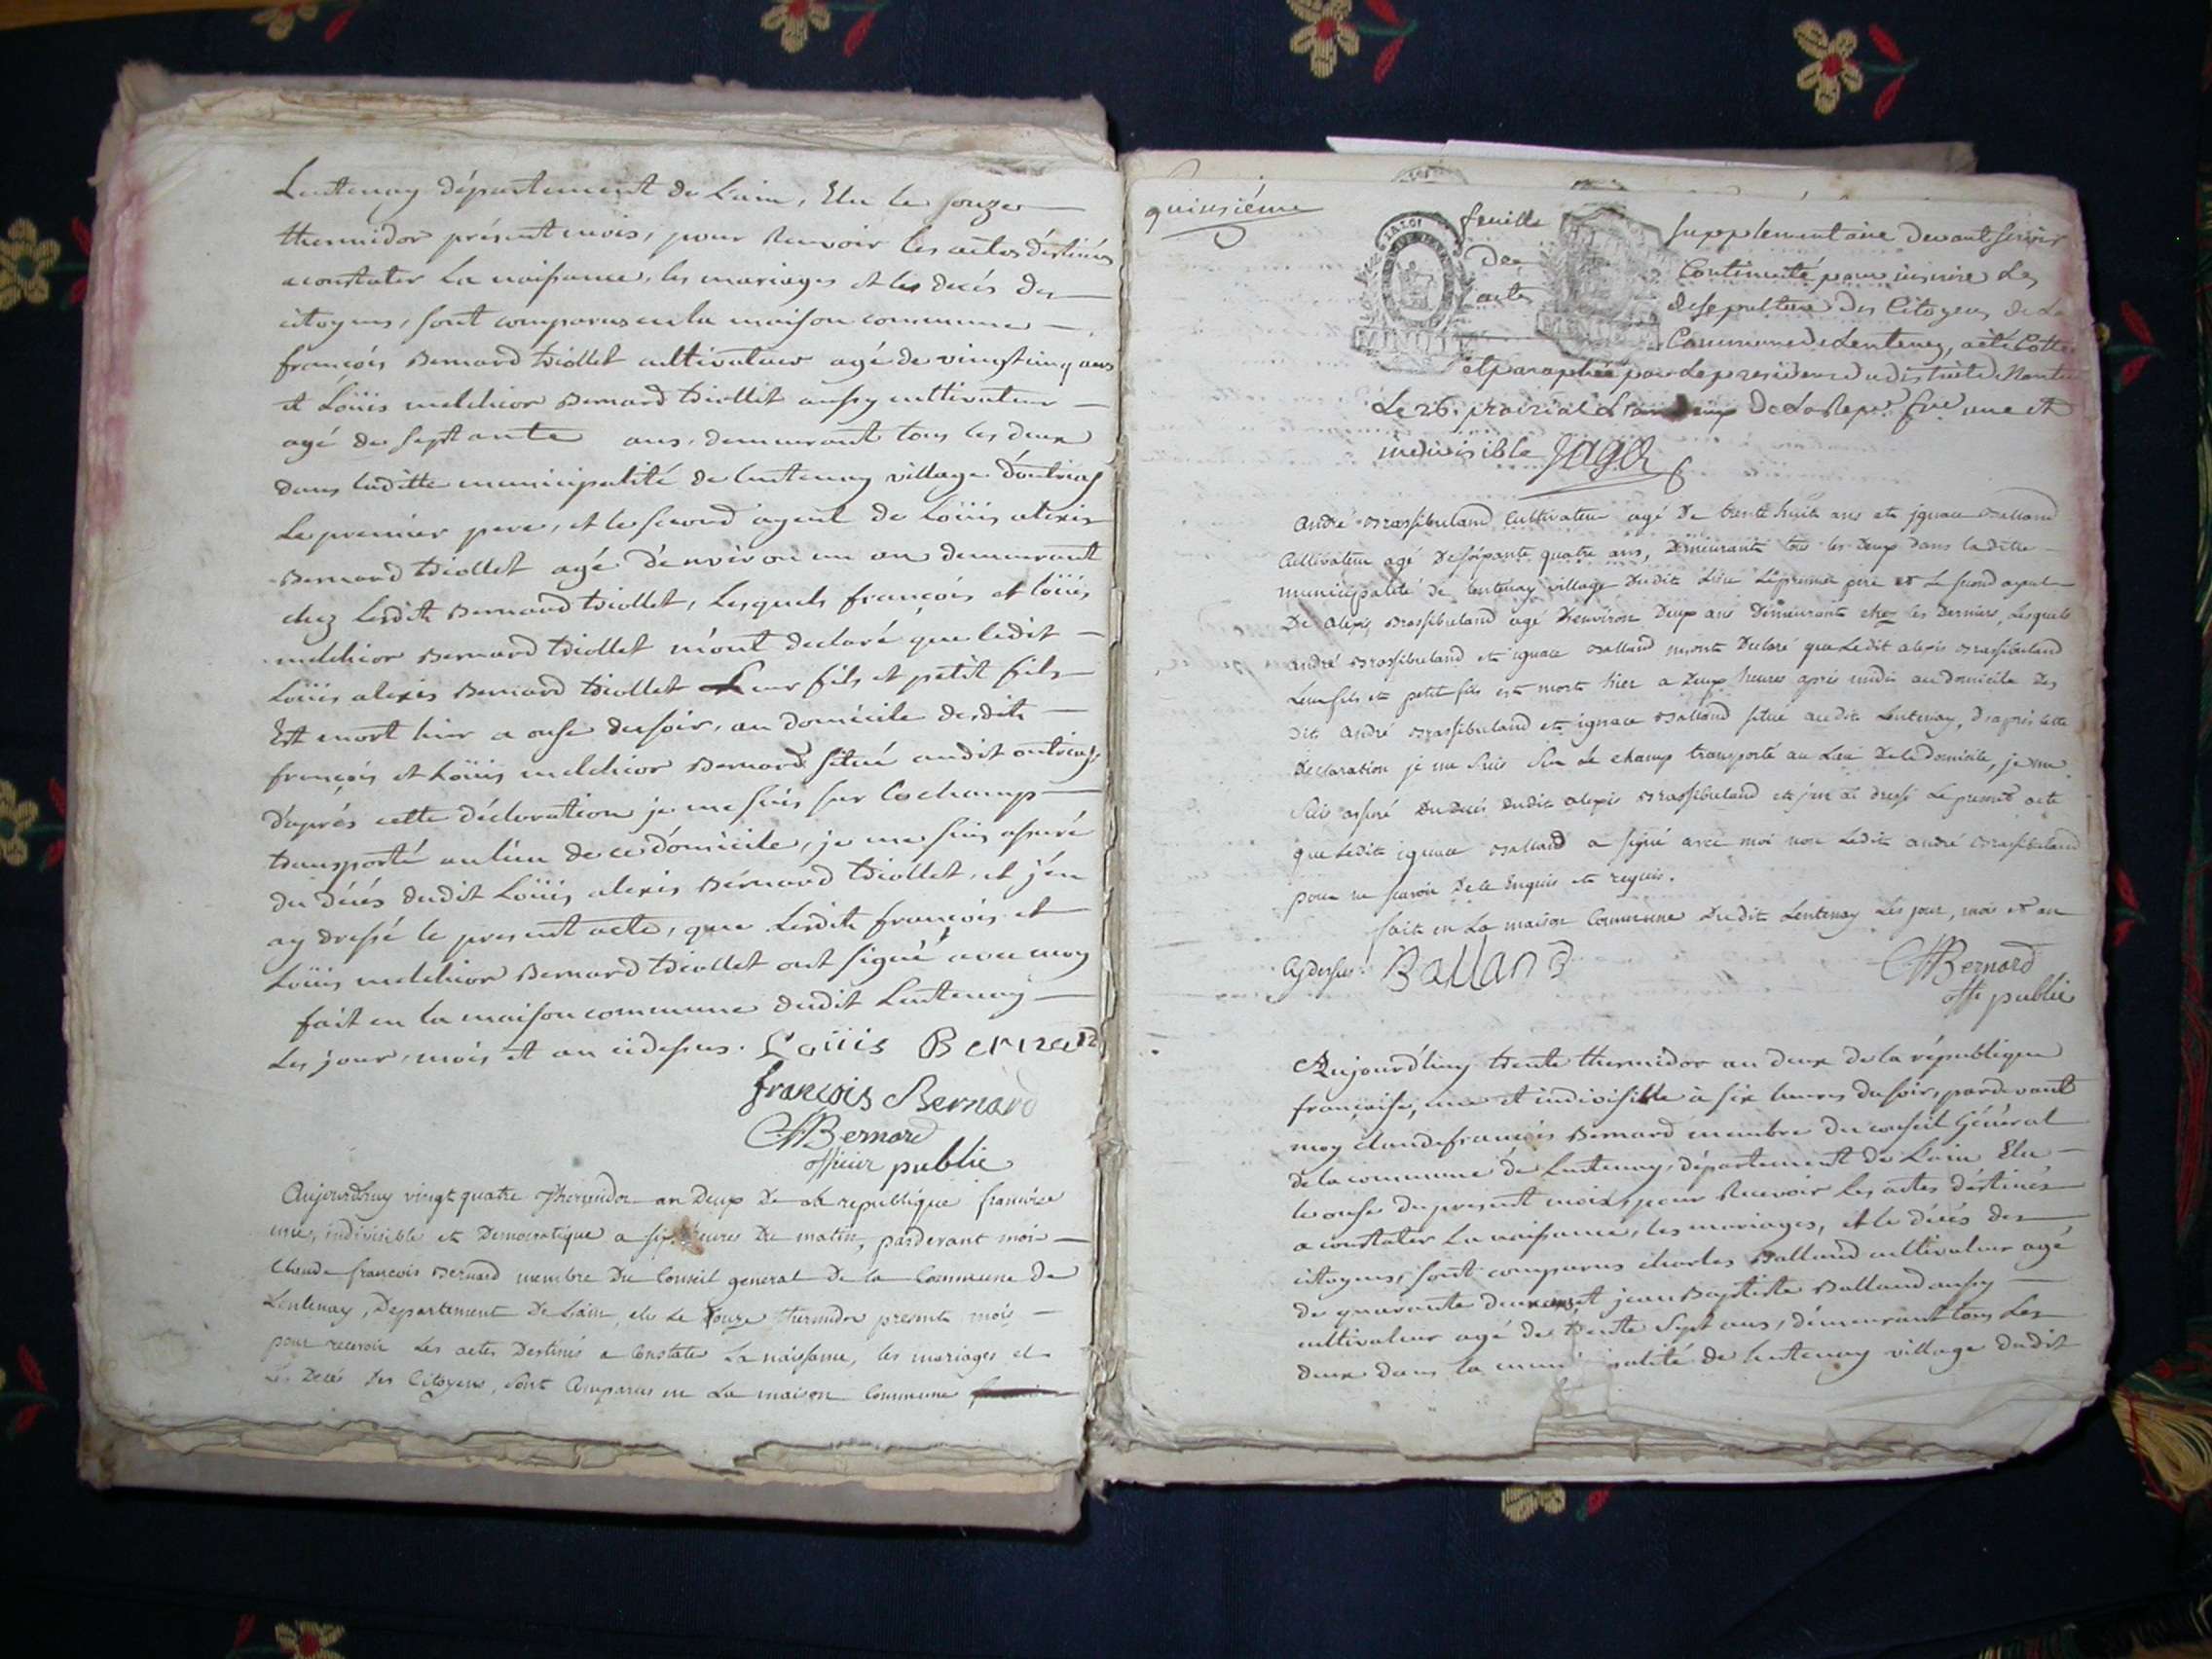 Lentenay département de Lain, Elu le onze
thermidor présent mois, pour Recevoir les actes déstinés
a constater La naissance, les mariages et les decés des
citoyens, sont comparus en la maison commune
françois Bernard triollet cultivateur agé de vingt cinq ans
et Loüis melchior Bernard triollet aussy cultivateur
agé de septante ans, demeurant tous les deux
dans laditte municipalité de lentenay village d'outriaz
Le premier pere, et le second ayeul de Loüis alexis
Bernard triollet agé d'environ un an demeurant
chez Lesdits Bernard triollet, Lesquels françois et loüis
melchior Bernard triollet m'ont declaré que ledit
Loüis alexis Bernard triollet Leur fils et petit fils
Est mort hier a onse du soir, au domicile desdits
françois et Loüis melchior Bernard situé audit outriaz
d'aprés cette déclaration je me suis sur le champ
transporté au lieu de ce dómicile, je me suis assuré
du décés dudit Loüis alexis Bérnard triollet, et j'én
ay dressé le present acte, que Lesdits françois et
Loüis melchior Bernard triollet ont signé avec moy
fait en la maison commune dudit Lentenay
Les jour, mois et an cidessus. Loüis Bernard
françois Bernard
Bernard
officier public
Aujourdhuy vingt quatre Thermidor an Deux De la republique francoise
une, indivisible et Democratique a six heures Du matin, pardevant moi
Claude françois Bernard membre Du Conseil general De la Commune de
Lentenay, Departement De Lain, elu Le onze thermidor present mois
pour recevoir Les actes Destinés a Constater La naissance, les mariages et
Les Decés Des Citoyens, Sont Comparus en La maison Commune
quinsiéme
feuille supplementaire devant servir
des Continuité pour inscrire Les
actes de sepulture des Citoyens de La
Commune de Lentenay, a été Cottée
MINUTE
et paraphée par Le president du district de Nantua
Le 26 prairial L'an deux De La Rep.e fse une et
indivisible Jagot
André Brassibuland Cultivateur agé De trente huit ans et ignace Balland
Cultivateur agé De soixante quatre ans, Demeurants tous les Deux Dans laditte
municipalité De lentenay village Dudit Lieu Le premier pere et Le second ayeul
De alexis Brassibuland agé D'environ Deux ans Demeurants chez les Derniers, Lesquels
André Brassibuland et ignace Balland m'ont Declaré que Ledit alexis Brassibuland
Leur fils et petit fils est mort hier a Deux heures aprés midi au domicile Des
Dits André Brassibuland et ignace Balland situé audit Lentenay, D'aprés cette
Declaration je me Suis Sur Le champ transporté au Lieu De ce Domicile, je me
Suis assuré Du Decés Dudit alexis Brassibuland et j'en ai Dressé Le present acte
que Ledit ignace Balland a signé avec moi non Ledit André Brassibuland
pour ne savoir De ce Enquis et requis.
fait en La maison Commune Dudit Lentenay Les jour, mois et an
Cydessus. Balland Bernard
offi public
Aujourd'huy trente thermidor an deux de la république
française, une et indivisible à six heures du soir, pardevant
moy claude françois Bernard membre du conseil Général
de la commune de Lentenay, département de Lain Elu
le onse du present mois, pour Recevoir les actes déstinés
a constater La naissance, les mariages, et le décés des
citoyens, sont comparus charles Balland cultivateur agé
de quarante deux ans, et jean Baptiste Balland aussy
cultivateur agé de trente sept ans, démeurant tous Les
deux dans la municipalité de lentenay village dudit